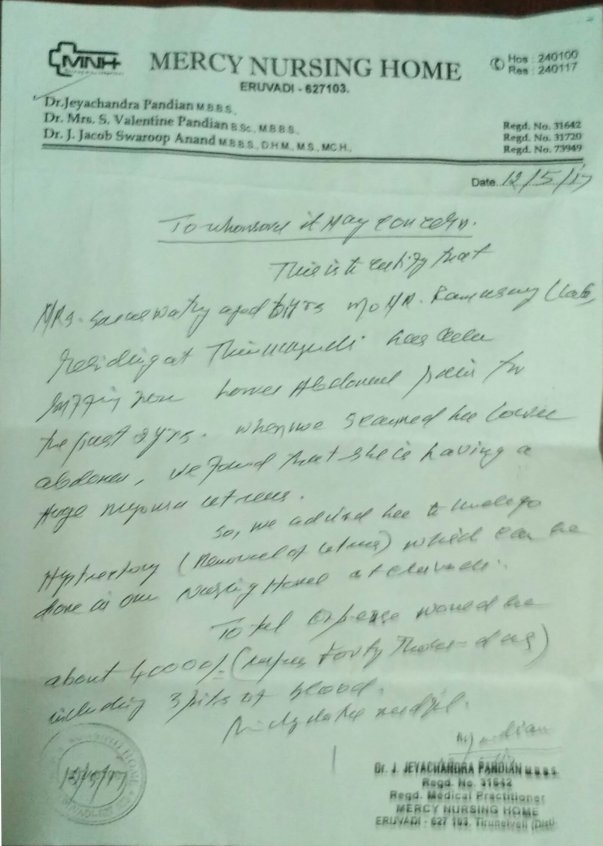 MNH
MERCY NURSING HOME
ERUVADI - 627103.
Hos : 240100
Res : 240117
Dr.Jeyachandra Pandian M.B.B.S.,
Dr. Mrs. S. Valentine Pandian B.Sc., M.B.B.S.,
Dr. J. Jacob Swaroop Anand M.B.B.S., D.H.M., M.S., M.C.H.,
Regd. No. 31642
Regd. No. 31720
Regd. No. 73949
Date. 12/5/17
To whomsoever it May concern.
This is to certify that
Mrs. Saraswathy aged yrs Mr. Ramasamy (Late)
residing at has been
from Lower Abdominal pain for
the past 2yrs. when we scanned her Lower
abdomen, we found that she is having a
Huge uterus.
So, we advised her to undergo
(Removal of uterus) which can be
done in our Nursing Home at Eruvadi.
Total Expense would be
about 40000/- (rupees Forty Thousand)
including 3 of blood.
Kindly do the needful.
Dr. J. JEYACHANDRA PANDIAN M.B.B.S.
Regd. No. 31642
Regd. Medical Practitioner
MERCY NURSING HOME
ERUVADI - 627 103. Tirunelveli (Dist)